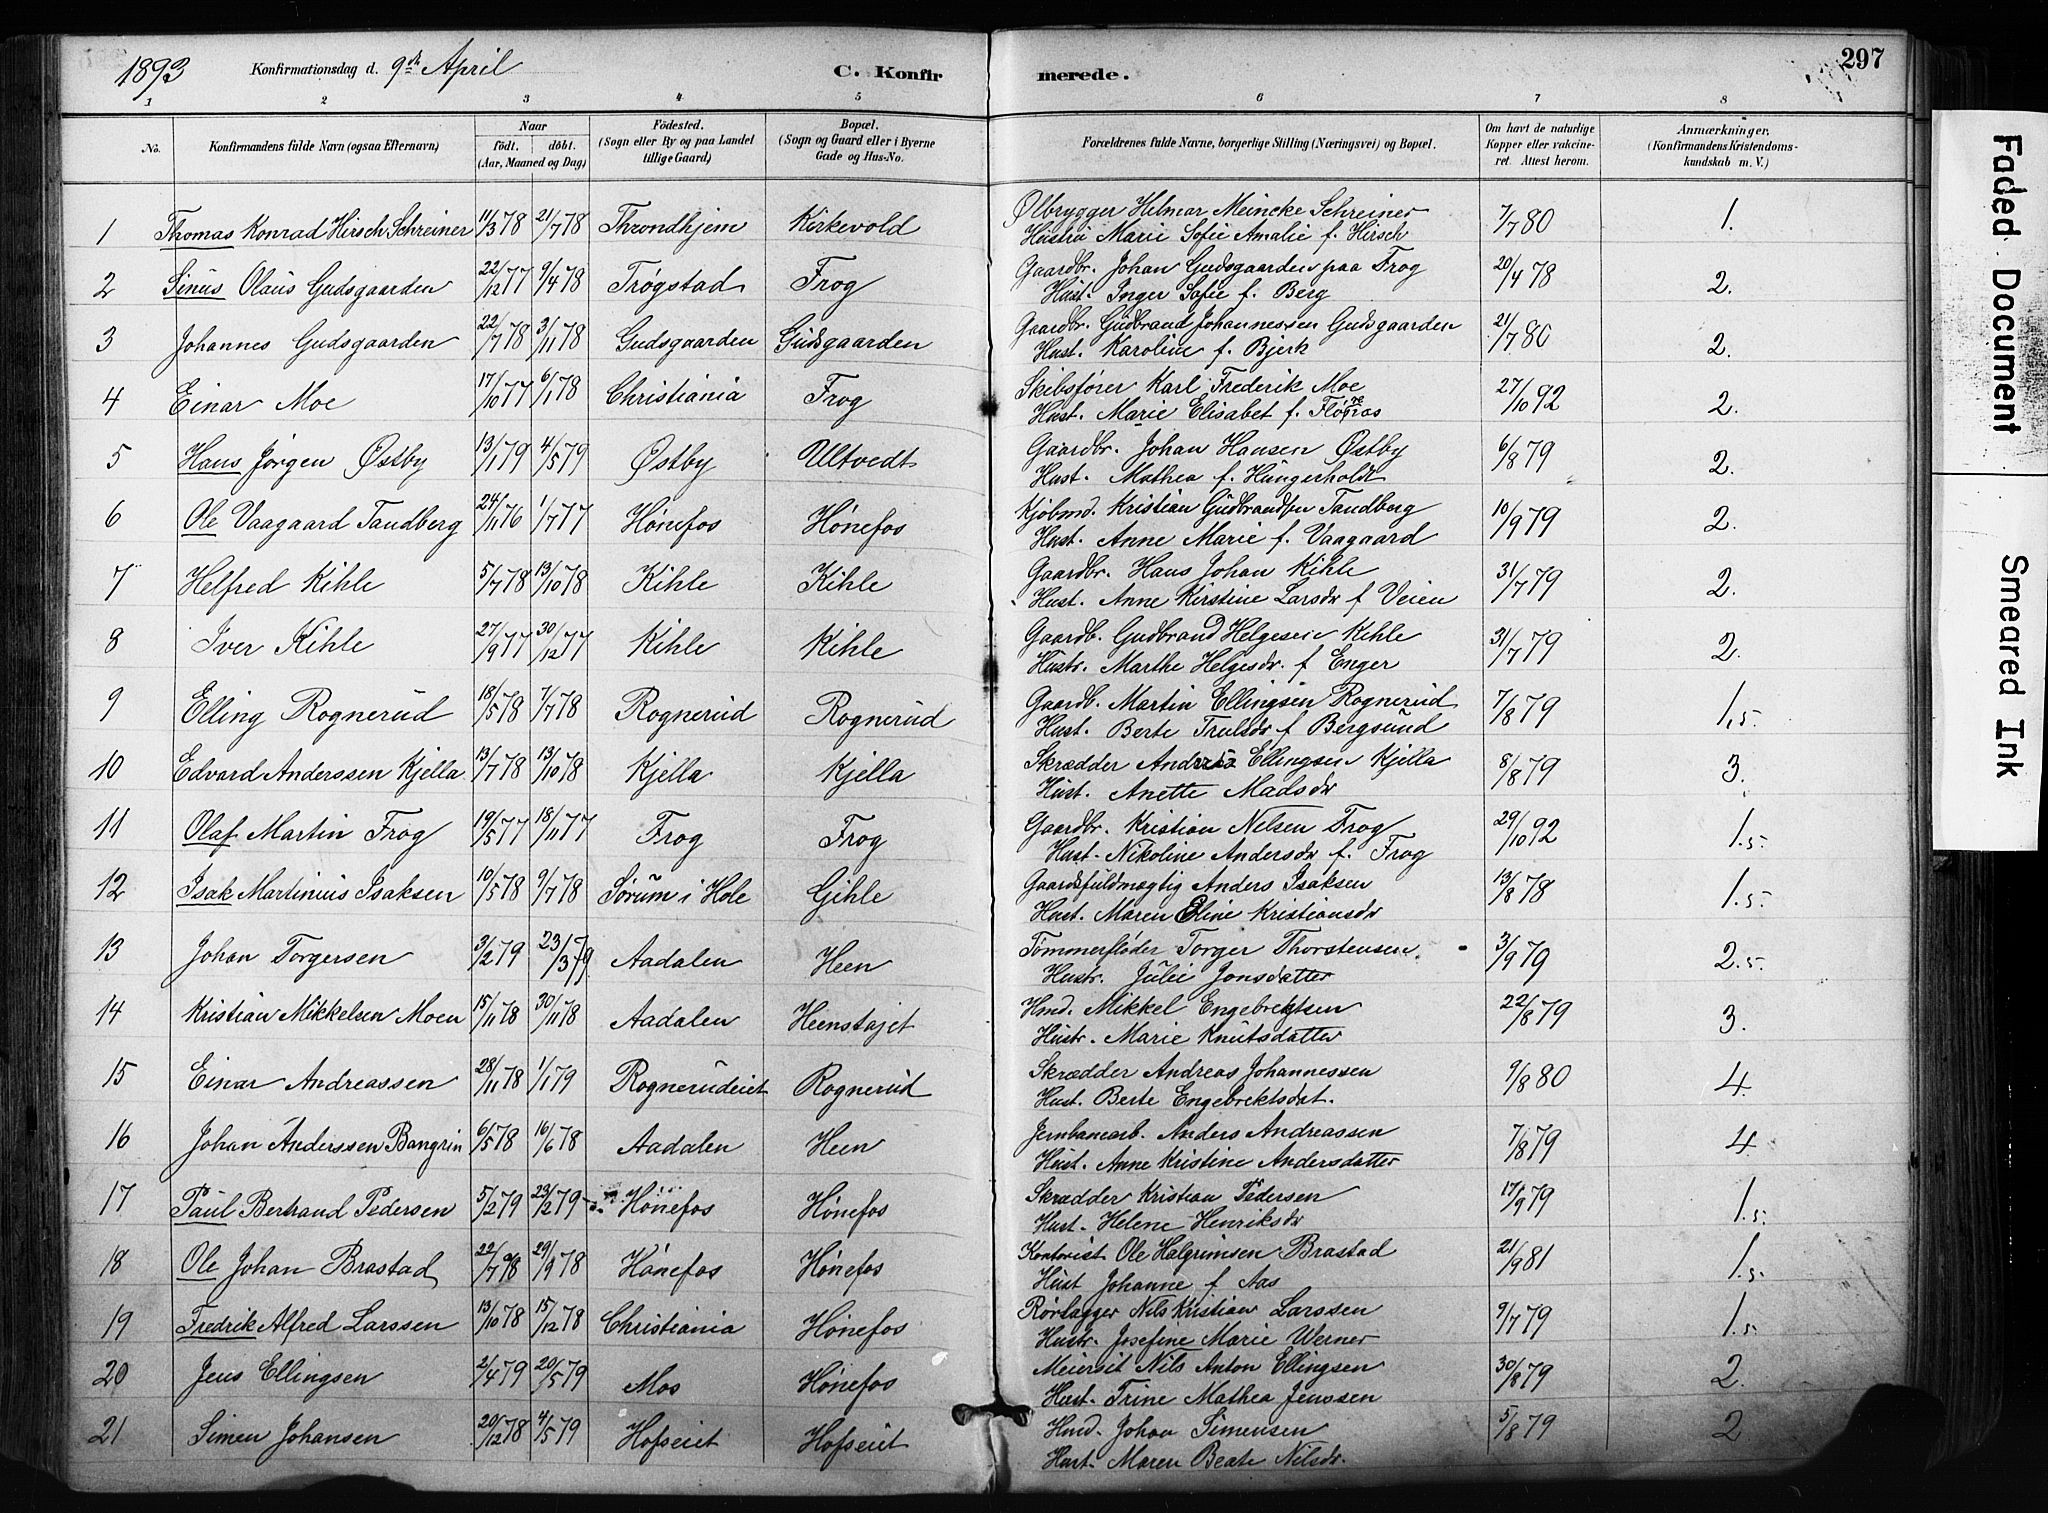 1893 Konfirmationsdag d. 9de April C. Konfirmerede. 297
1 2 3 4 5 6 7 8
No. Konfirmandens fulde Navn (ogsaa Efternavn) Naar født. døbt. (Aar, Maaned og Dag) Fødested. (Sogn eller By og paa Landet tillige Gaard) Bopæl. (Sogn og Gaard eller i Byerne Gade og Hus-No. Forældrenes fulde Navne, borgerlige Stilling (Næringsvei) og Bopæl. Om havt de naturlige Kopper eller vakcineret. Attest herom. Anmærkninger. (Konfirmandens Kristendomskundskab m. V.)
1 Thomas Konrad Hirsch Schreiner 11/3 78 21/7 78 Throndhjem Kirkevold Ølbrygger Helmar Meincke Schreiner 7/7 80 1.
Hustru Marie Sofie Amalie f. Hirsch
2 Sinus Olaus Gudsgaarden 22/12 77 9/4 78 Trøgstad Frog Gaardbr. Johan Gudsgaarden paa Frog 20/4 78 2.
Hust. Inger Sofie f. Berg
3 Johannes Gudsgaarden 22/7 78 3/11 78 Gudsgaarden Gudsgaarden Gaardbr. Gudbrand Johannessen Gudsgaarden 21/7 80 2.
Hust. Karoline f. Bjerk
4 Einar Moe 17/10 77 6/1 78 Christiania Frog Skibsfører Karl Frederik Moe 27/10 92 2.
Hust. Marie Elisabet f.
5 Hans Jørgen Østby 13/1 79 4/5 79 Østby Ultvedt Gaardbr. Johan Hansen Østby 6/8 79 2.
Hust. Mathea f. Hungerholdt
6 Ole Vaagaard Tandberg 24/11 76 1/7 77 Hønefos Hønefos Kjøbmd. Kristian Gudbrandsen Tandberg 10/9 79 2.
Hust. Anne Marie f. Vaagaard
7 Helfred Kihle 5/7 78 13/10 78 Kihle Kihle Gaardbr. Hans Johan Kihle 31/7 79 2.
Hust. Anne Kirstine Larsdr f Veien
8 Iver Kihle 27/9 77 30/12 77 Kihle Kihle Gaardb. Gudbrand Helgesen Kihle 31/7 79 2.
Hustr. Marthe Helgesdr. f Enger
9 Elling Rognerud 18/5 78 7/7 78 Rognerud Rognerud Gaardb. Martin Ellingsen Rognerud 7/8 79 1,5.
Hust. Berte Trulsdr f Bergsund
10 Edvard Anderssen Kjella 13/7 78 13/10 78 Kjella Kjella Skrædder Andreas Ellingsen Kjella 8/8 79 3.
Hust. Anette Madsdr
11 Olaf Martin Frog 19/5 77 18/11 77 Frog Frog Gaardbr. Kristian Nelsen Frog 29/10 92 1.5.
Hust. Nikoline Andersdr f. Frog
12 Isak Martinius Isaksen 10/5 78 9/7 78 Sørum i Hole Gihle Gaardsfuldmægtig Anders Isaksen 13/8 78 1.5.
Hust. Maren Eline Kristiansdr
13 Johan Torgersen 3/2 79 23/3 79 Aadalen Heen Tømmerfløder Torger Thorstensen 3/9 79 2.5.
Hustr. Julie Jonsdatter
14 Kristian Mikkelsen Moen 15/11 78 30/11 78 Aadalen Heenstajet Hmd. Mikkel Engebrektsen 22/8 79 3.
Hustr. Marie Knutsdatter
15 Einar Andreassen 28/11 78 1/1 79 Rognerudeiet Rognerud Skrædder Andreas Johannessen 9/8 80 4.
Hust. Berte Engebrektsdat.
16 Johan Anderssen Bangrin 6/5 78 16/6 78 Aadalen Heen Jernbanearb. Anders Andreassen 7/8 79 4
Hust. Anne Kristine Andersdatter
17 Paul Bertrand Pedersen 5/2 79 23/2 79 Hønefos Hønefos Skrædder Kristian Pedersen 17/9 79 1.5.
Hust. Helene Henriksdr
18 Ole Johan Brastad 22/7 78 29/9 78 Hønefos Hønefos Kontorist Ole Halgrimsen Brastad 21/9 81 1.5.
Hust Johanne f. Aas
19 Fredrik Alfred Larssen 13/10 78 15/12 78 Christiania Hønefos Rørlægger Nils Kristian Larssen 9/7 79 1.5
Hustr. Josefine Marie Werner
20 Jens Ellingsen 2/4 79 20/5 79 Mos Hønefos Meierist Nils Anton Ellingsen 30/8 79 2.
Hust. Trine Mathea Jenssen
21 Simen Johansen 20/12 78 4/5 79 Hofseiet Hofseiet Hmd. Johan Simensen 5/8 79 2
Hust. Maren Beate Nilsdr.
Faded Document
Smeared Ink